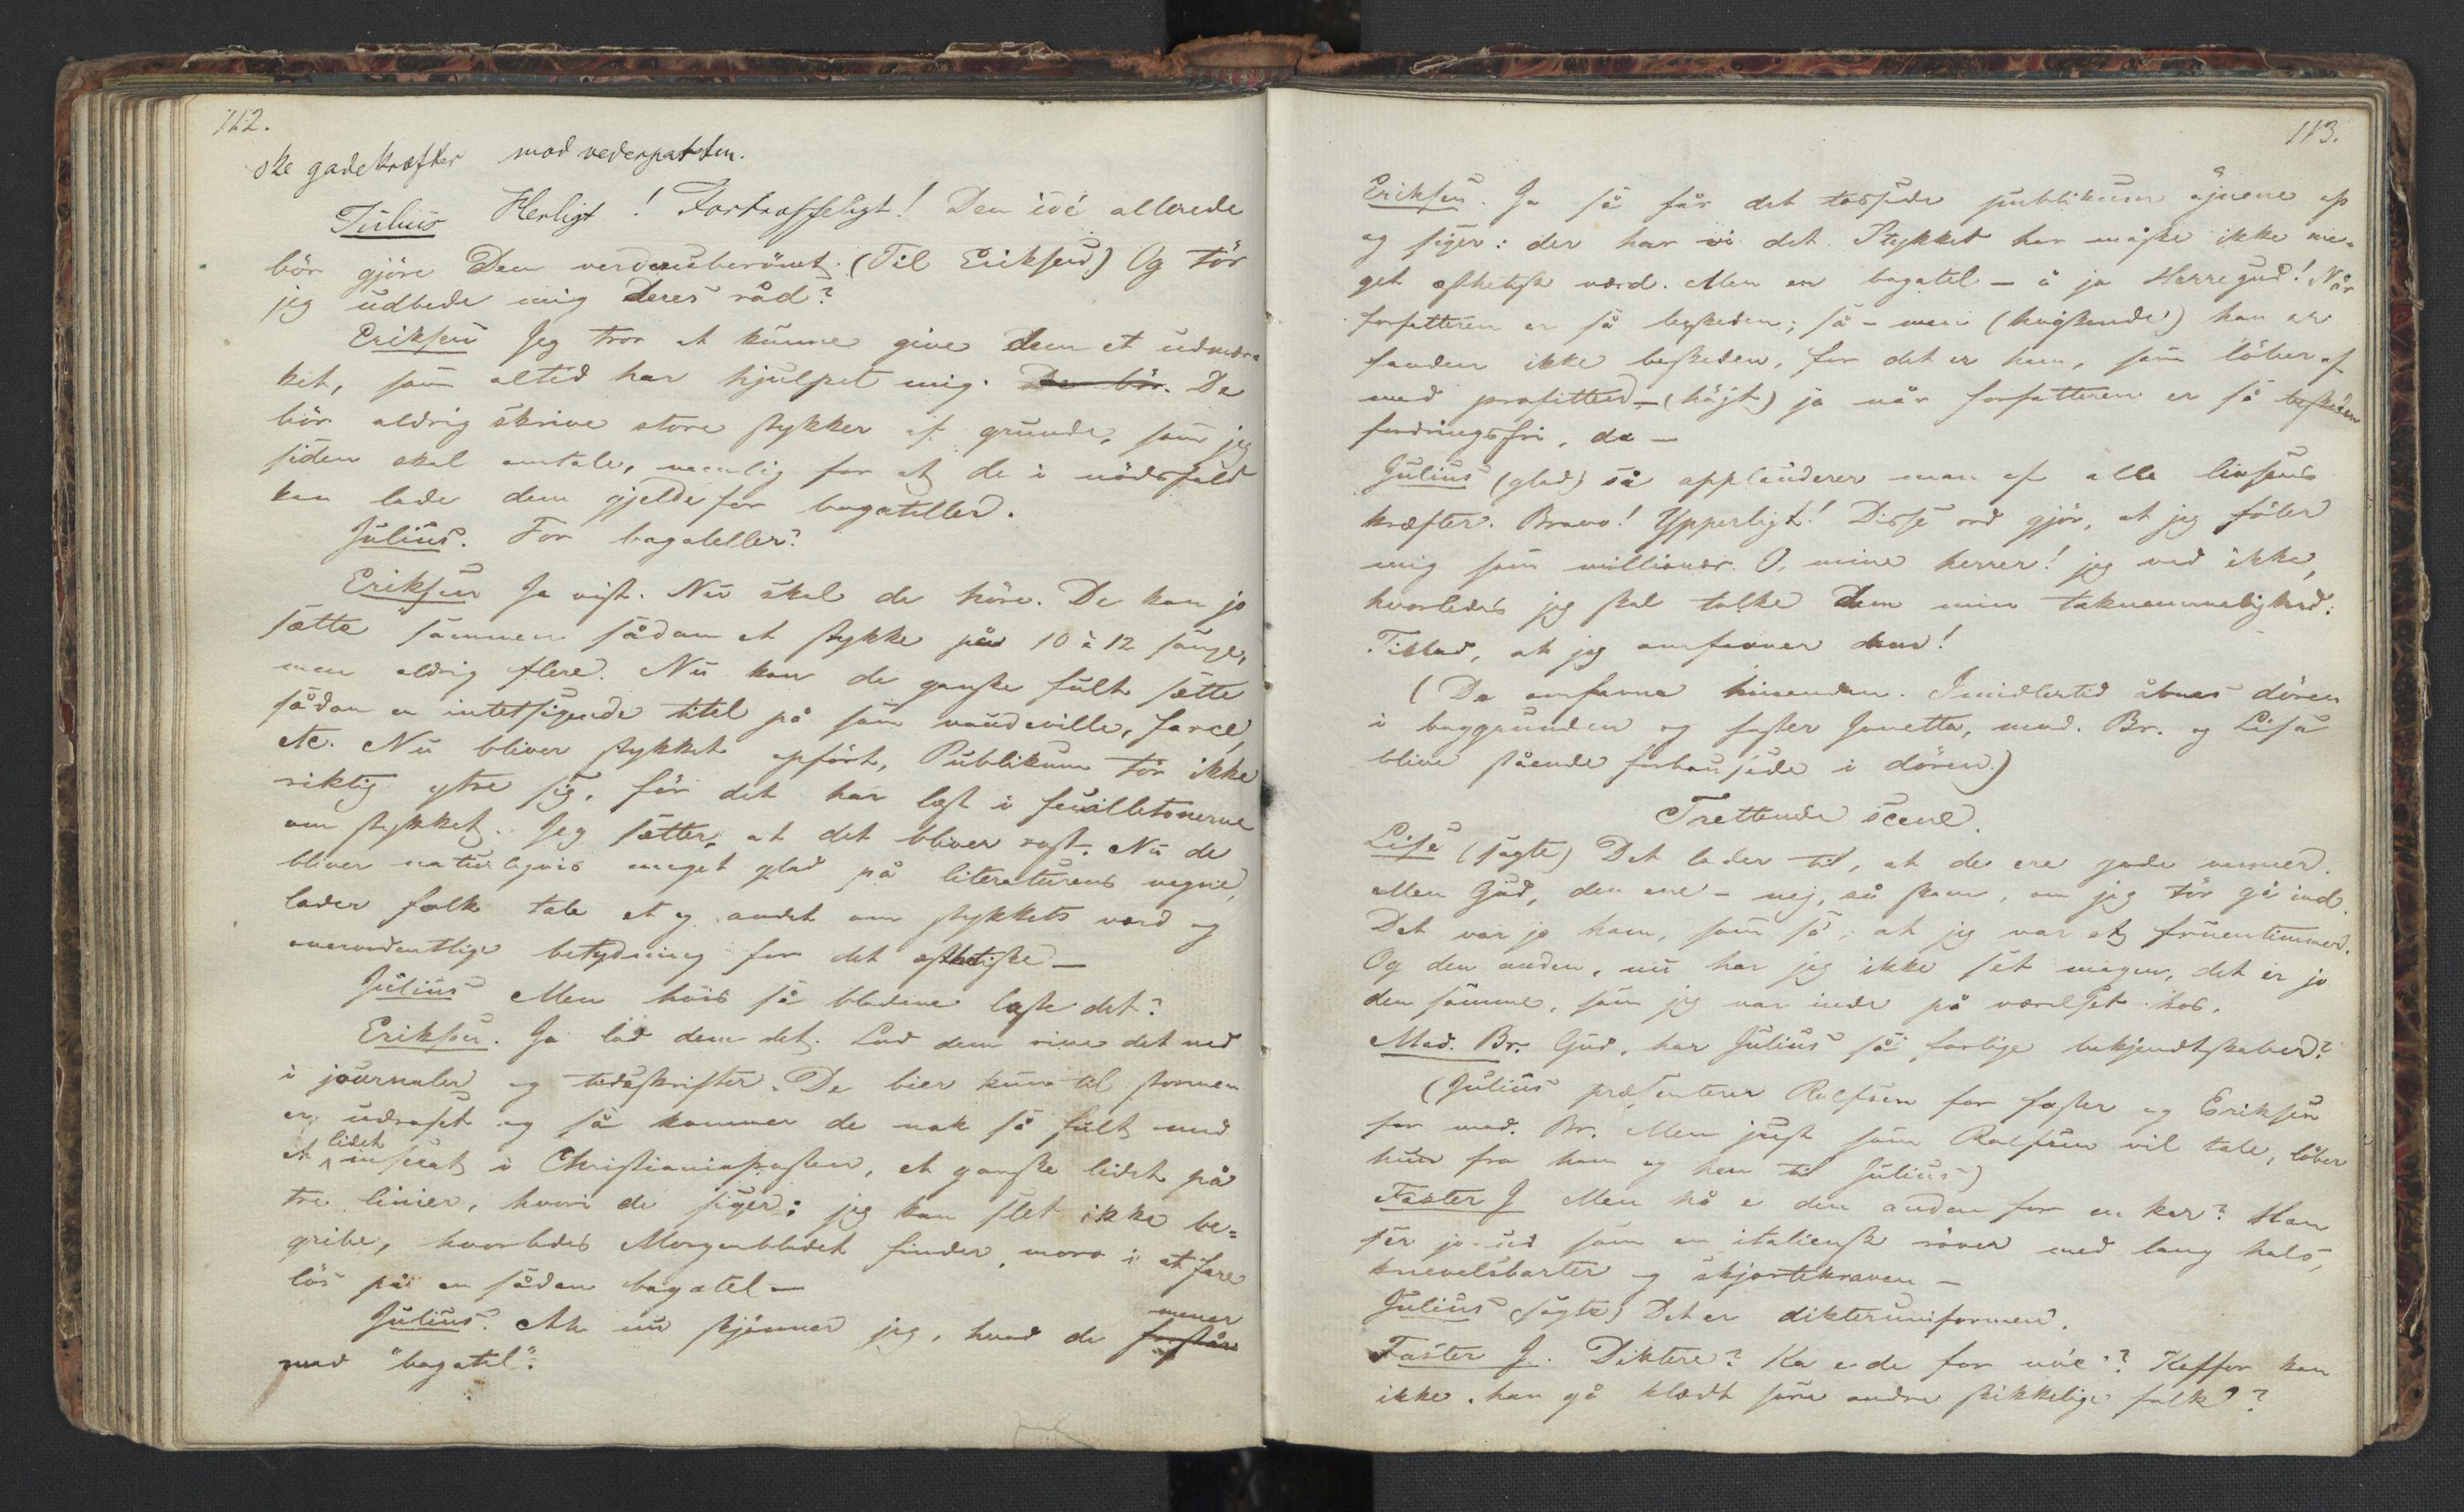 112.
ske gadekræfter mod vederparten.
Julius Herligt! Fortræffeligt! Den idé allerede
bör gjöre Dem verdensberömt. (Til Eriksen) Og tör
jeg udbede mig Deres råd?
Eriksen Jeg tror at kunne give Dem et udmær=
ket, som altid har hjulpet mig. De bör. De
bör aldrig skrive store stykker af grunde, som jeg
siden skal omtale, nemlig for at de i nödsfald
kan lade dem gjelde for bagateller.
Julius. For bagateller?
Eriksen Ja vist. Nu skal de höre. De kan jo
sætte sammen sådan et stykke på 10 à 12 sange,
men aldrig flere. Nu kan de ganske fult sætte
sådan en intetsigende titel på som vaudeville, farce,
etc. Nu bliver stykket opfört, Publikum tör ikke
riktig ytre sig, för det har læst i feuilletonerne
om stykket. Jeg sætter, at det bliver rost. Nu de
bliver naturligvis meget glad på literaturens vegne,
lader folk tale et og andet om stykkets værd og
overordentlige betydning for det æsthetiske —
Julius Men hvis så bladene laste det?
Eriksen. Ja lad dem det. Lad dem rive det ned
i journaler og tidsskrifter. De bier kun til stormen
er udraset og så kommer de nok så fult med
et lidet inserat i Christianiaposten, et ganske lidet på
tre linier, hvori de siger: jeg kan slet ikke be=
gribe, hvorledes Morgenbladet finder moro i at fare
lös på en sådan bagatel —
Julius. Ah nu skjönner jeg, hvad de forstår mener
med "bagatel".
113.
Eriksen. Ja så får det tossede publikum öjnene op
og siger: der har vi det. Stykket har måske ikke me=
get æsthetisk værd. Men en bagatel — å ja Herregud! Når
forfatteren er så beskeden; så — men (hviskende) han er
fanden ikke beskeden, for det er ham, som löber af
med profitten — (höjt) ja når forfatteren er så beskeden
fordringsfri, da —
Julius (glad) så applauderer man af alle livsens
kræfter. Bravo! Ypperligt! Disse ord gjör, at jeg föler
mig som millionær. O, mine herrer! jeg ved ikke,
hvorledes jeg skal tolke Dem min taknemmelighed.
Tillad, at jeg omfavner dem!
(De omfavne hinanden. Imidlertid åbnes dören
i baggrunden og faster Janetta, mad. Br. og Lise
blive stående forbausede i dören.)
Trettende scene.
Lise (sagte) Det lader til, at de ere gode venner.
Men Gud, den ene — nej, så skam, om jeg tör gå ind.
Det var jo ham, som så, at jeg var et fruentimmer.
Og den anden, nu har jeg ikke set magen, det er jo
den samme, som jeg var inde på værelset hos.
Mad. Br. Gud, har Julius så farlige bekjendtskaber?
(Julius præsenterer Rolfsen for faster og Eriksen
for mad. Br. Men just som Rolfsen vil tale, löber
hun fra ham og hen til Julius)
Faster J Men hå e den anden for en kar? Han
ser jo ud som en italiensk röver med lang hals,
knevelsbarter og skjortekraven —
Julius (sagte) Det er dikteruniformen.
Faster J. Diktere? Ka e de for noe? Koffor kan
ikke han gå klædt som andre skikkelige folk?